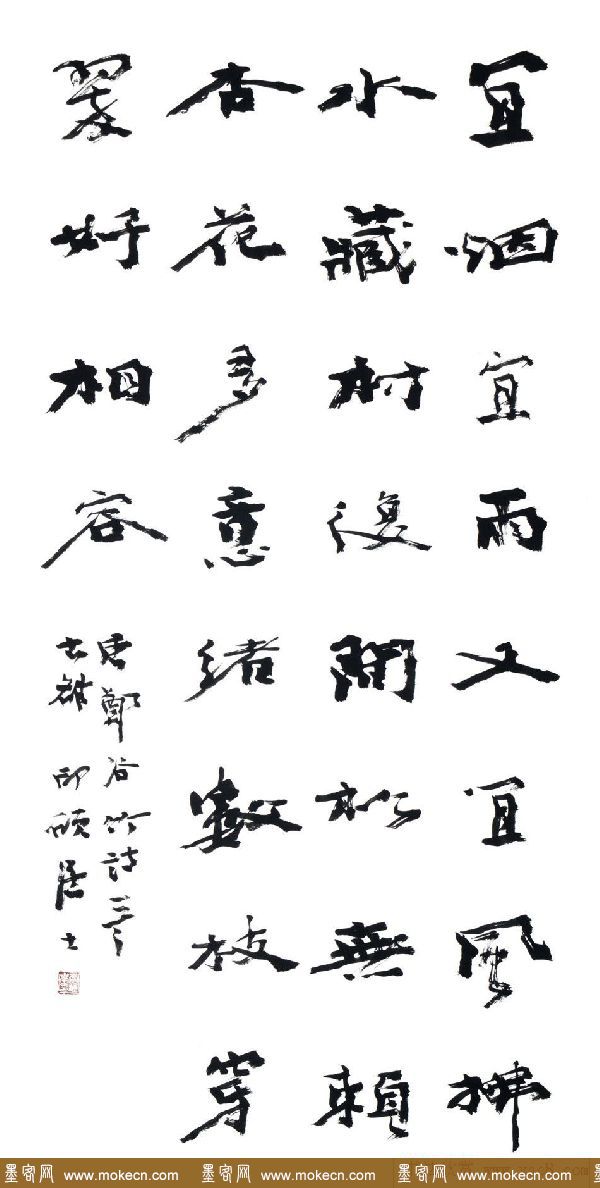 宜烟宜雨又宜風拂
水藏村復間松無賴
杏花多意緒數枝穿
翠好相容
唐鄭谷竹詩
士雄居士
墨客网 www.mokecn.com 墨客网 www.mokecn.com 墨客网 www.mokecn.com